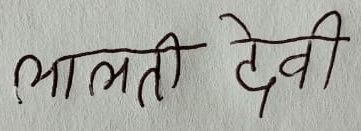 लालती देवी